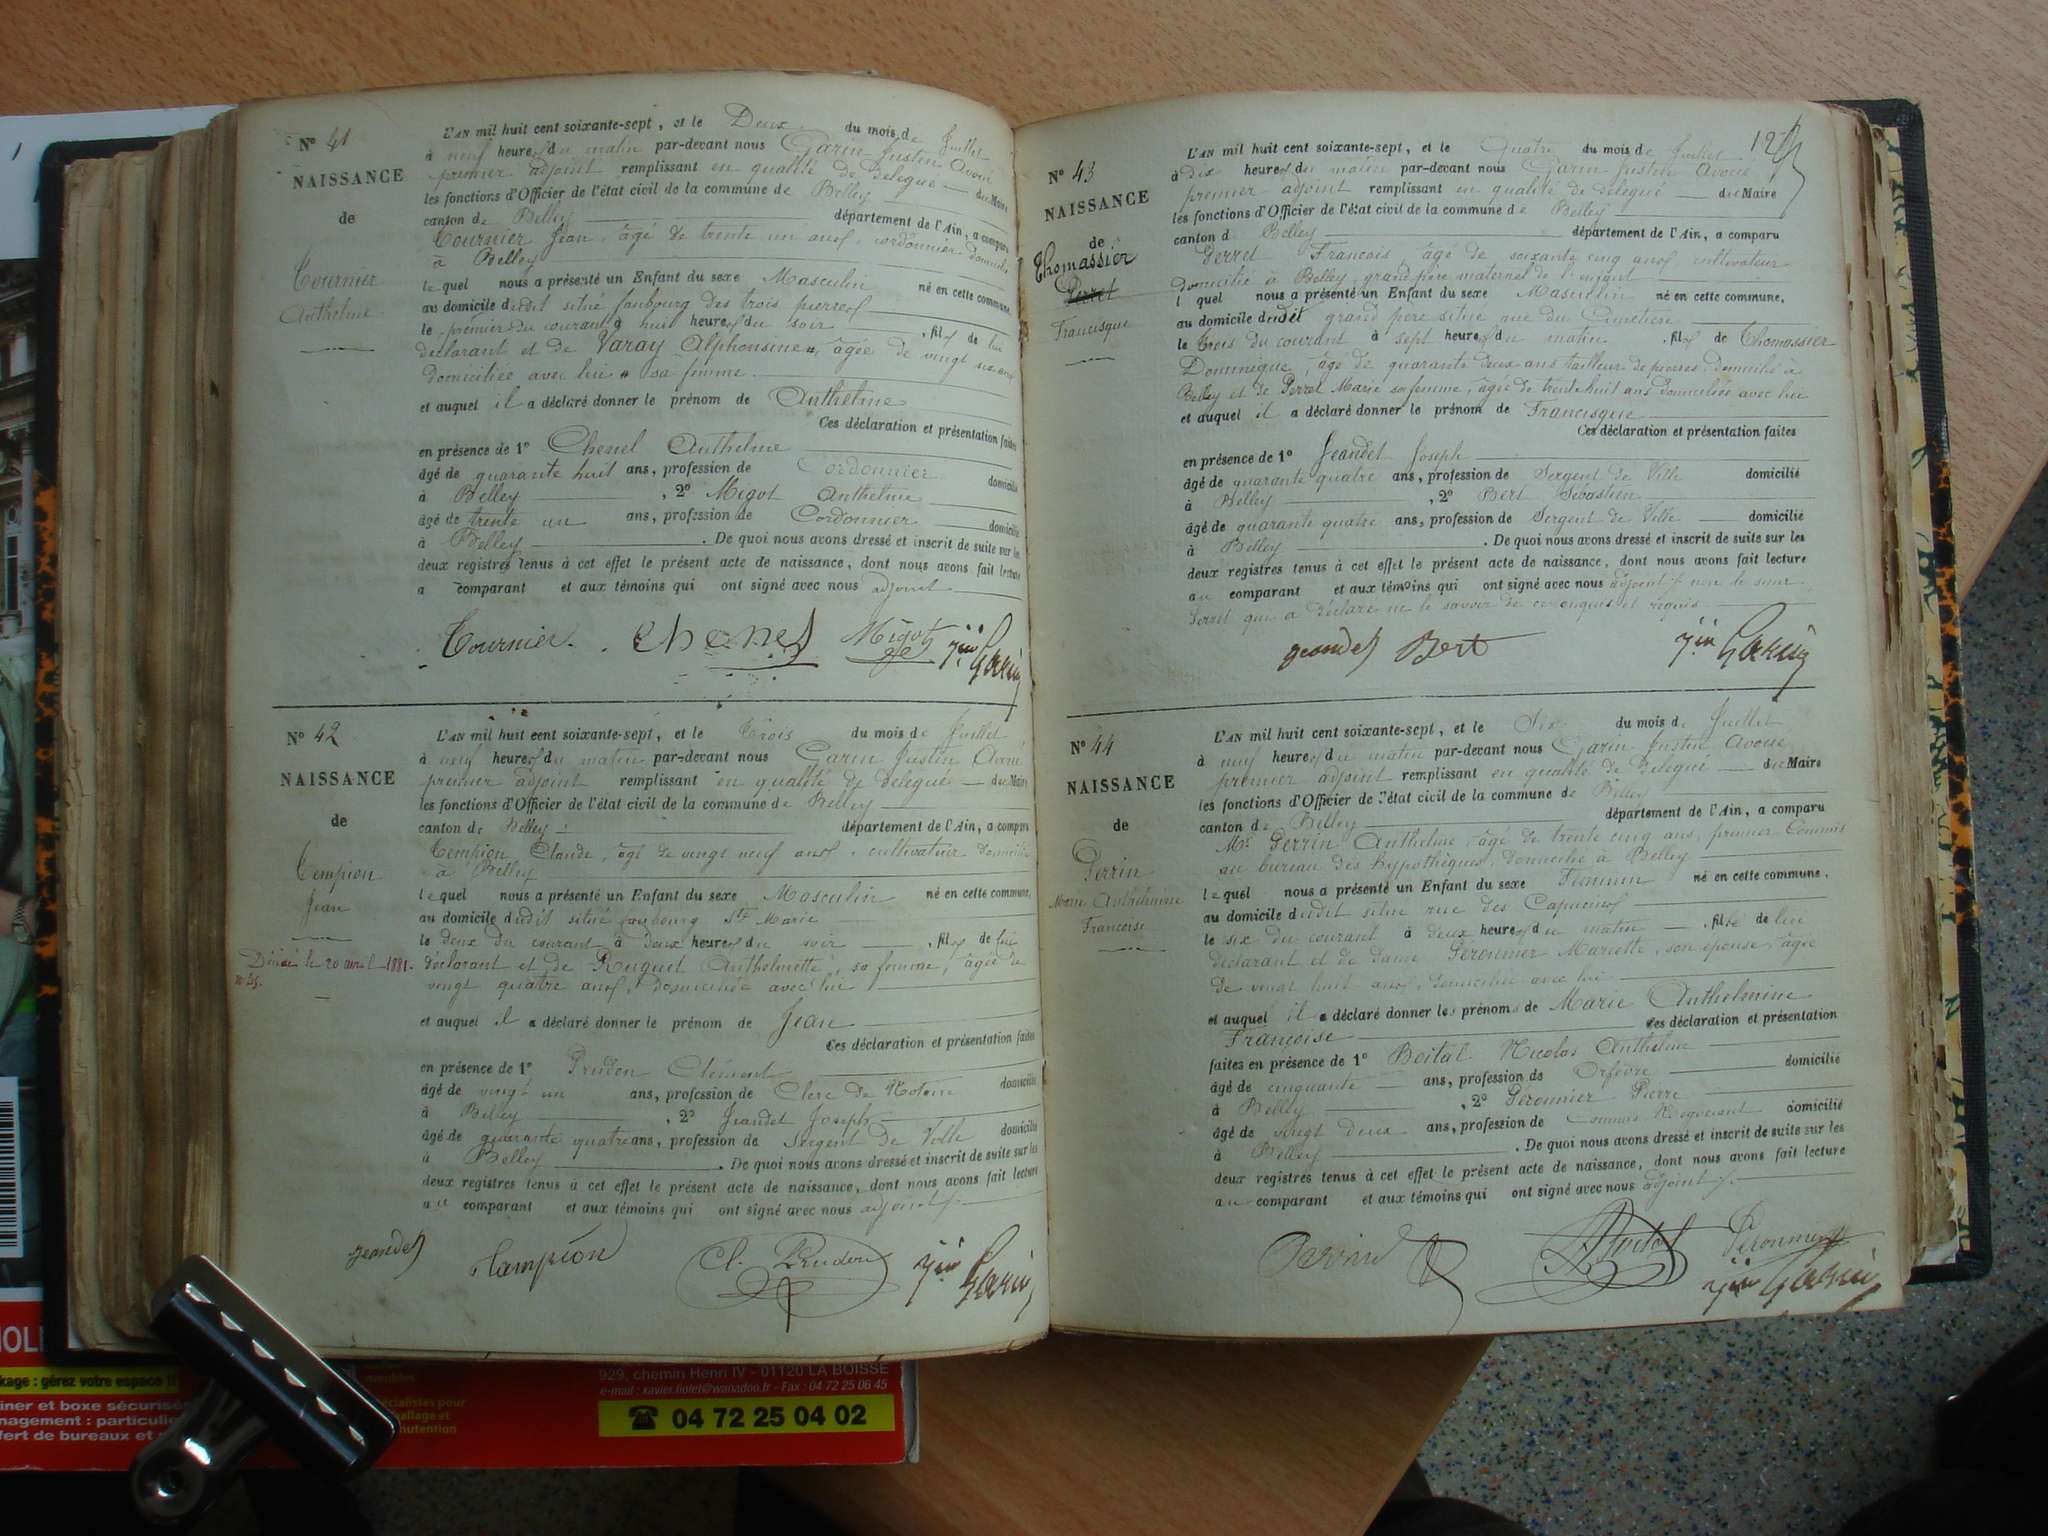 N° 41
NAISSANCE
de
Tournier
Anthelme
L'AN mil huit cent soixante-sept, et le Deux du mois de Juillet
à neuf heures du matin par-devant nous Garin Justin Avoué
premier adjoint remplissant en qualité de Délégué du Maire
les fonctions d'Officier de l'état civil de la commune de Belley
canton de Belley département de l'Ain, a comparu
Tournier Jean, âgé de trente un ans, cordonnier domicilié
à Belley
lequel nous a présenté un Enfant du sexe Masculin né en cette commune,
au domicile dudit situé faubourg des trois pierres
le premier du courant à huit heures du soir, fils de lui
déclarant et de Varay Alphonsine, âgée de vingt six ans
domiciliée avec lui sa femme.
et auquel il a déclaré donner le prénom de Anthelme
Ces déclaration et présentation faites
en présence de 1° Chenel Anthelme
âgé de quarante huit ans, profession de Cordonnier domicilié
à Belley, 2° Migot Anthelme
âgé de trente un ans, profession de Cordonnier domicilié
à Belley. De quoi nous avons dressé et inscrit de suite sur les
deux registres tenus à cet effet le présent acte de naissance, dont nous avons fait lecture
a comparant et aux témoins qui ont signé avec nous adjoint
Tournier. Chenel Migot Jin Garin
N° 42
NAISSANCE
de
Tempion
Jean
Décédé le 20 avril 1881.
n° 45.
L'AN mil huit cent soixante-sept, et le Trois du mois de Juillet
à neuf heures du matin par-devant nous Garin Justin Avoué
premier adjoint remplissant en qualité de délégué du Maire
les fonctions d'Officier de l'état civil de la commune de Belley
canton de Belley département de l'Ain, a comparu
Tempion Claude, âgé de vingt neuf ans, cultivateur domicilié
à Belley
lequel nous a présenté un Enfant du sexe Masculin né en cette commune,
au domicile dudit situé faubourg Ste Marie
le deux du courant à Deux heures du soir, fils de lui
déclarant et de Ruguet Anthelmette, sa femme, âgée de
vingt quatre ans, domiciliée avec lui
et auquel il a déclaré donner le prénom de Jean
Ces déclaration et présentation faites
en présence de 1° Prudon Clément
âgé de vingt un ans, profession de Clerc de Notaire domicilié
à Belley, 2° Jeandet Joseph
âgé de quarante quatre ans, profession de Sergent de Ville domicilié
à Belley. De quoi nous avons dressé et inscrit de suite sur les
deux registres tenus à cet effet le présent acte de naissance, dont nous avons fait lecture
au comparant et aux témoins qui ont signé avec nous adjoint
jeandet tampion Cl. Prudon Jin Garin
N° 43
NAISSANCE
de
Thomassier
Perret
Francisque
L'AN mil huit cent soixante-sept, et le Quatre du mois de Juillet
à dix heures du matin par-devant nous Garin Justin Avoué
premier adjoint remplissant en qualité de délégué du Maire
les fonctions d'Officier de l'état civil de la commune de Belley
canton d Belley département de l'Ain, a comparu
Perret François, âgé de soixante cinq ans, cultivateur
domicilié à Belley, grand père maternel de l'enfant
l quel nous a présenté un Enfant du sexe Masculin né en cette commune,
au domicile dudit grand père situé rue du Cimetière
le Trois du courant à sept heures du matin, fils de Thomassier
Dominique, âgé de quarante deux ans tailleur de pierres, domicilié à
Belley et de Perret Marie sa femme, âgée de trente huit ans domiciliée avec lui
et auquel il a déclaré donner le prénom de Francisque
Ces déclaration et présentation faites
en présence de 1° Jeandet Joseph
âgé de quarante quatre ans, profession de Sergent de Ville domicilié
à Belley, 2° Bert Sébastien
âgé de quarante quatre ans, profession de Sergent de Ville domicilié
à Belley. De quoi nous avons dressé et inscrit de suite sur les
deux registres tenus à cet effet le présent acte de naissance, dont nous avons fait lecture
au comparant et aux témoins qui ont signé avec nous adjoint non le sieur
Perret qui a déclaré ne le savoir de ce enquis et requis
jeandet Bert Jin Garin
N° 44
NAISSANCE
de
Perrin
Marie Anthelmine
Françoise
L'AN mil huit cent soixante-sept, et le Six du mois de Juillet
à neuf heures du matin par-devant nous Garin Justin Avoué
premier adjoint remplissant en qualité de Délégué du Maire
les fonctions d'Officier de l'état civil de la commune de Belley
canton de Belley département de l'Ain, a comparu
Mr Perrin Anthelme, âgé de trente cinq ans, premier Commis
au bureau des hypothèques, domicilié à Belley
lequel nous a présenté un Enfant du sexe Féminin né en cette commune,
au domicile dudit situé rue des Capucins
le six du courant à deux heures du matin, fille de lui
déclarant et de dame Péronnier Mariette, son épouse, âgée
de vingt huit ans, domiciliée avec lui
et auquel il a déclaré donner les prénoms de Marie Anthelmine
Françoise Ces déclaration et présentation
faites en présence de 1° Boital Nicolas Anthelme
âgé de cinquante ans, profession de Orfèvre domicilié
à Belley, 2° Péronnier Pierre
âgé de vingt deux ans, profession de Commis Négociant domicilié
à Belley. De quoi nous avons dressé et inscrit de suite sur les
deux registres tenus à cet effet le présent acte de naissance, dont nous avons fait lecture
au comparant et aux témoins qui ont signé avec nous adjoint
Perrin Boital Péronnier
Jin Garin
929, chemin Henri IV - 01120 LA BOISSE
e-mail : xavier.fiolet@wanadoo.fr - Fax : 04 72 25 06 45
04 72 25 04 02
kage : gérez votre espace !!
iner et boxe sécurisé
nagement : particulie
fert de bureaux et
meubles
écialistes pour
ballage et
nutention